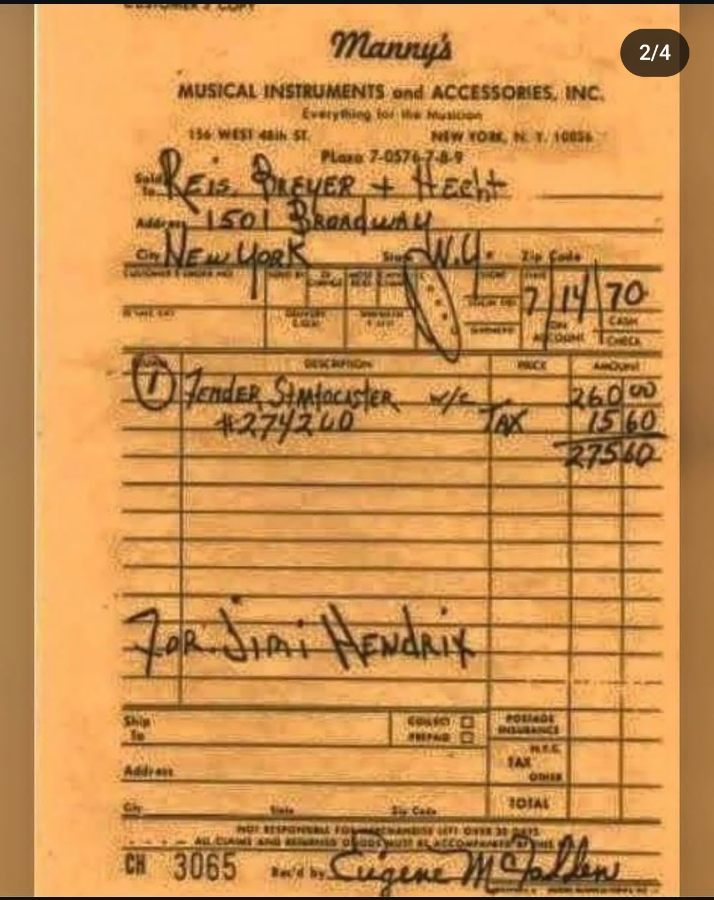 CUSTOMER'S COPY
2/4
Manny's
MUSICAL INSTRUMENTS and ACCESSORIES, INC.
Everything for the Musician
156 WEST 48th ST. NEW YORK, N. Y. 10036
PLaza 7-0576-7-8-9
Sold To Reis, Breyer + Hecht
Address 1501 Broadway
City New York State N.Y. Zip Code
7/14/70
ON ACCOUNT CASH
CHECK
DESCRIPTION PRICE AMOUNT
1 Fender Stratocaster w/c 260 00
#274260 TAX 15 60
275 60
For: Jimi Hendrix
Ship To COLLECT POSTAGE
PREPAID INSURANCE
N.Y.C.
Address TAX
OTHER
City State Zip Code TOTAL
NOT RESPONSIBLE FOR MERCHANDISE LEFT OVER 30 DAYS
ALL CLAIMS AND RETURNED GOODS MUST BE ACCOMPANIED BY THIS
CH 3065 Rec'd by Eugene McFadden